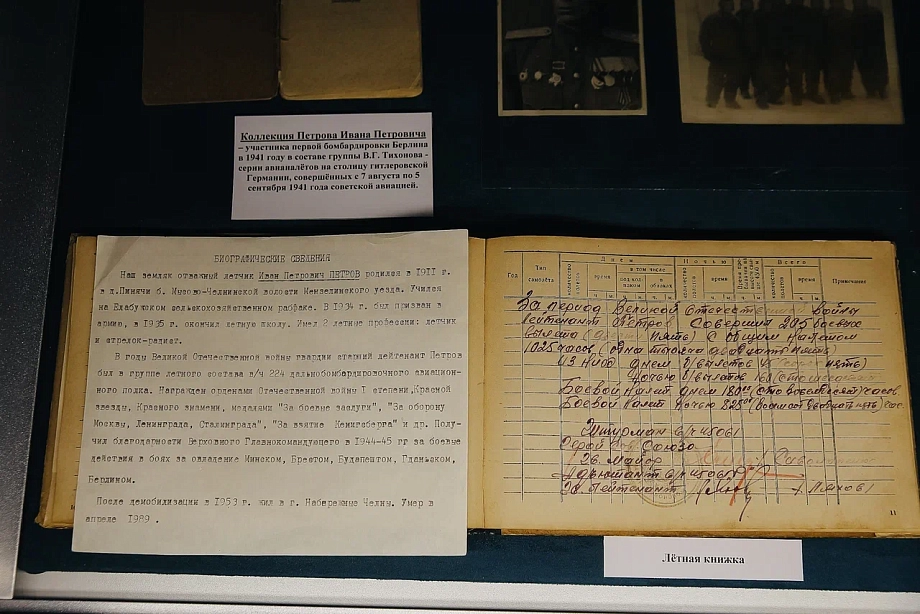 Коллекция Петрова Ивана Петровича
– участника первой бомбардировки Берлина
в 1941 году в составе группы В.Г. Тихонова -
серии авианалётов на столицу гитлеровской
Германии, совершённых с 7 августа по 5
сентября 1941 года советской авиацией.
БИОГРАФИЧЕСКИЕ СВЕДЕНИЯ
Наш земляк отважный летчик Иван Петрович ПЕТРОВ родился в I9II г.
в д.Пинячи б. Мысово-Челнинской волости Мензелинского уезда. Учился
на Елабужском сельскохозяйственном рабфаке. В I934 г. был призван в
армию, в I935 г. окончил летную школу. Имел 2 летные профессии: летчик
и стрелок-радист.
В годы Великой Отечественной войны гвардии старший лейтенант Петров
был в группе летного состава в/ч 224 дальнебомбардировочного авиацион-
ного полка. Награжден орденами Отечественной войны I степени, Красной
звезды, Красного знамени, медалями "За боевые заслуги", "За оборону
Москвы, Ленинграда, Сталинграда", "За взятие Кенигсберга" и др. Полу-
чил благодарности Верховного Главнокомандующего в I944-45 гг за боевые
действия в боях за овладение Минском, Брестом, Будапештом, Гданьском,
Берлином.
После демобилизации в I953 г. жил в г. Набережные Челны. Умер в
апреле I989 .
Год
Тип самолёта
Днем
Ночью
Всего
Примечание
в том числе
время
время
время
За период Великой Отечественной Войны
Лейтенант Петров Совершил 205 боевых
вылета пять) с общим налетом
1025 часов (одна тысяча двадцать пять)
Из них днем вылетов пять)
Ночью вылетов
Боевой Налет днем часов
Боевой Налет Ночью час.
Штурман в/ч 45061
Герой Сов Союза
Гв. Майор
Адъютант в/ч 45061
Гв. Лейтенант
11
Лётная книжка